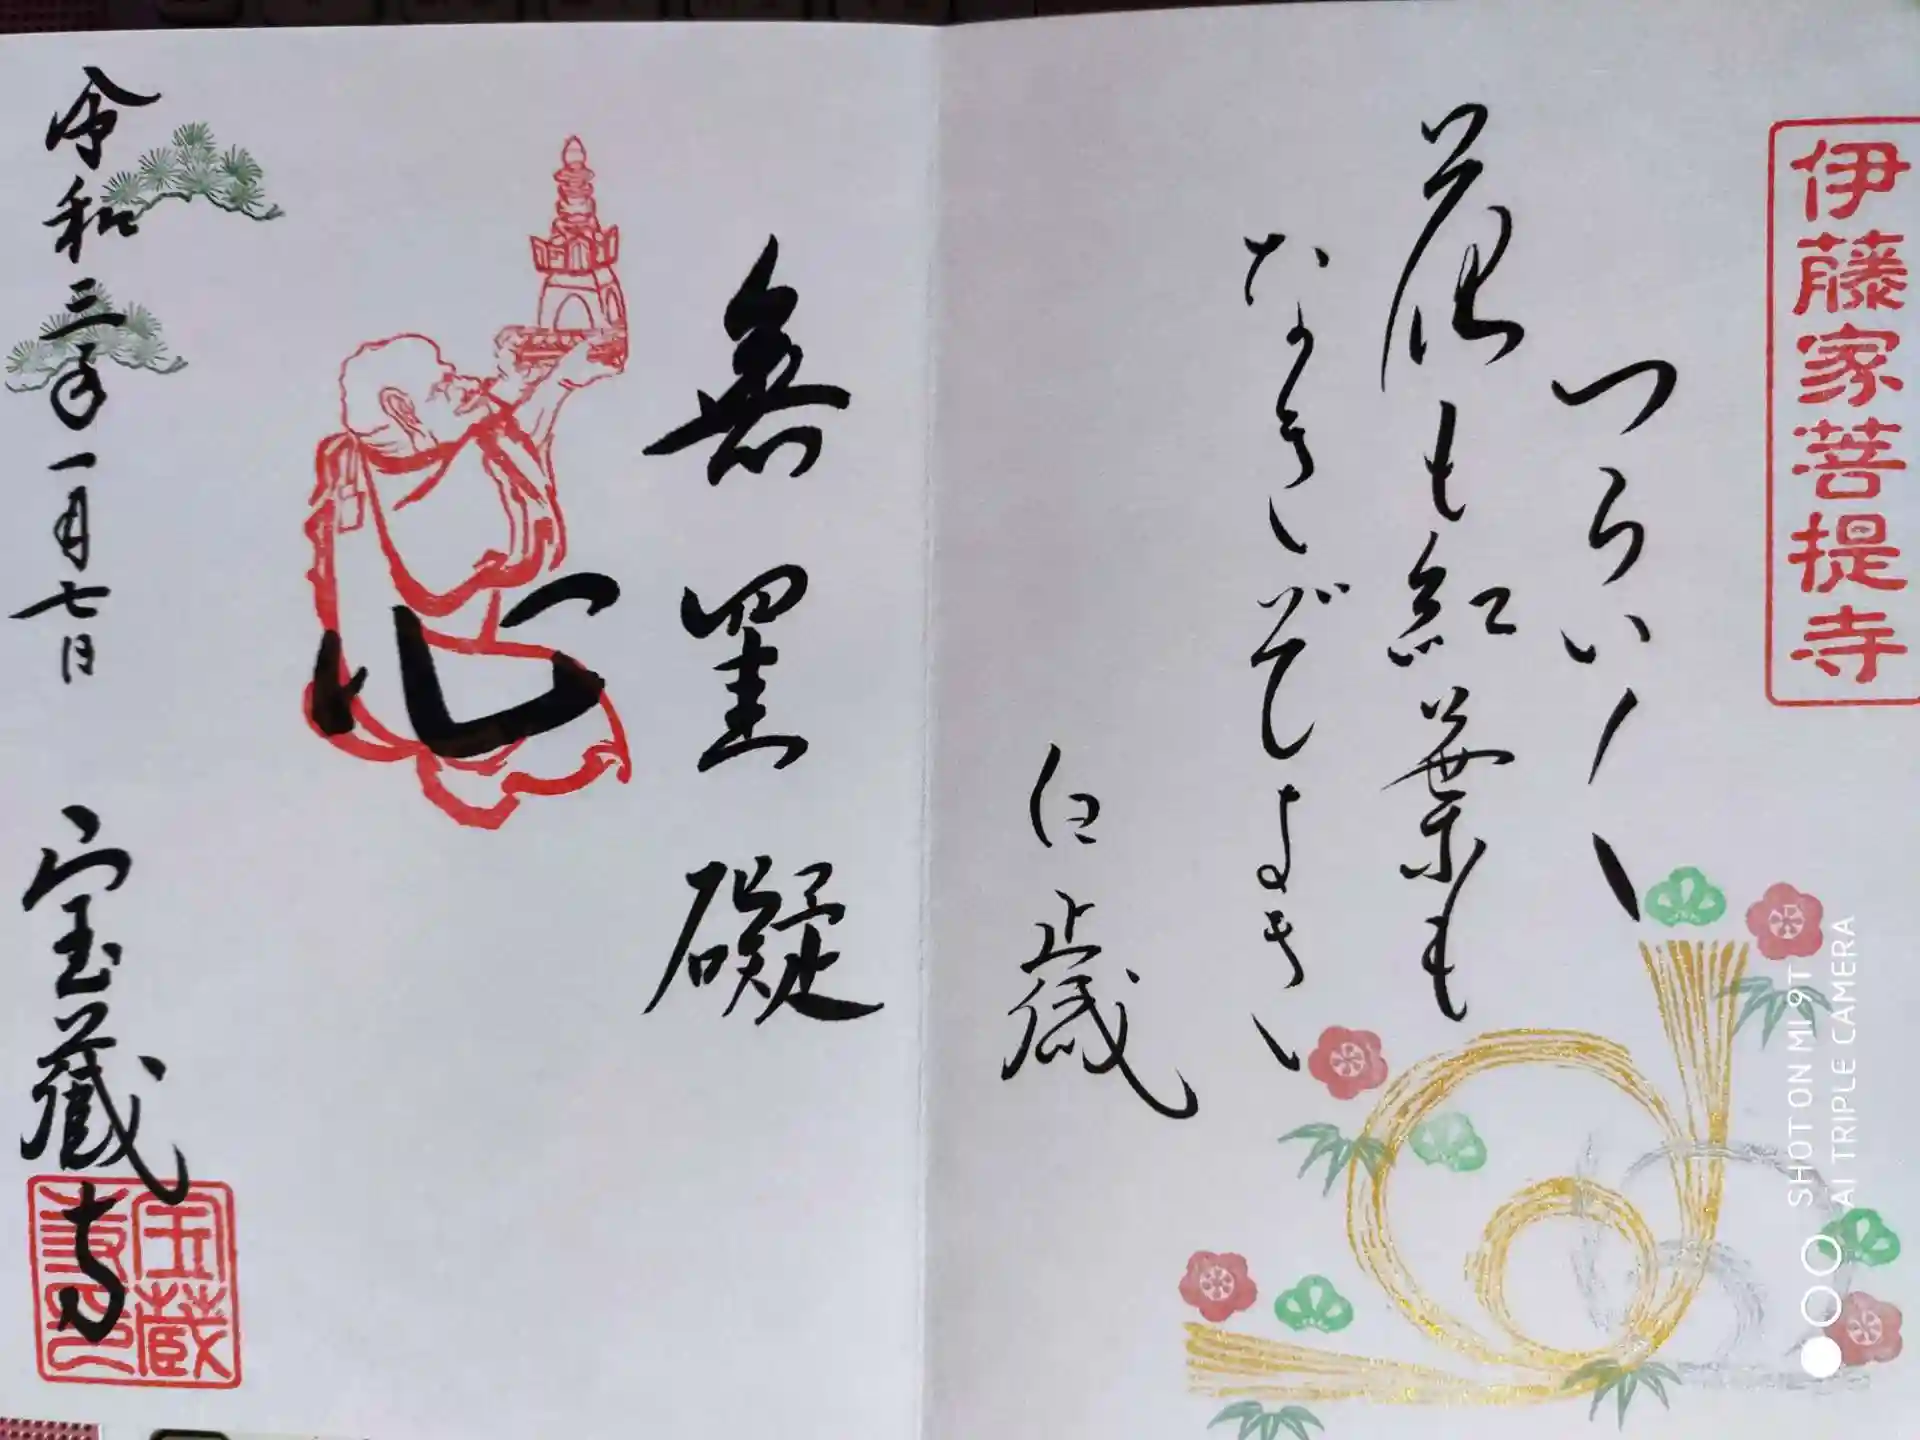 伊藤家菩提寺
つらい〱
花も紅葉も
なきぞよき
白止蔵
無罣礙
心
令和三年一月七日 宝蔵寺
SHOT ON MI 9T
AI TRIPLE CAMERA